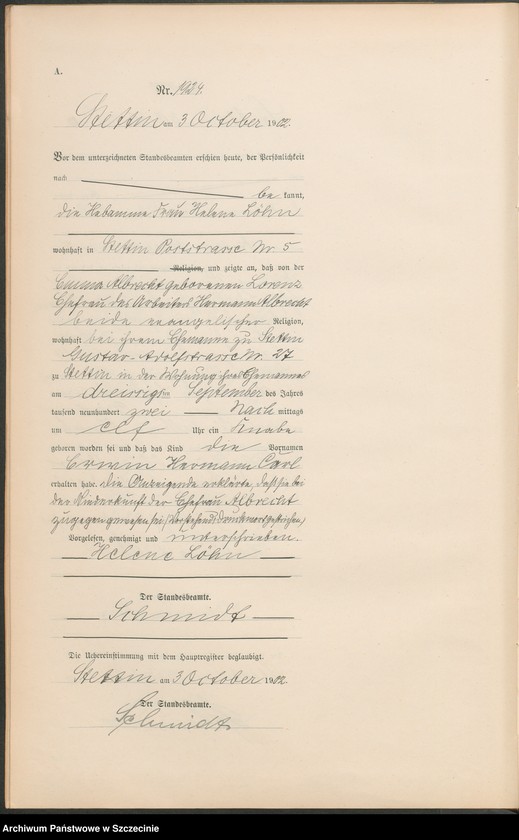 A.
Nr. 1624.
Stettin am 3 October 1902.
Vor dem unterzeichneten Standesbeamten erschien heute, der Persönlichkeit
nach
be kannt,
die Hebamme Frau Helene Löhn
wohnhaft in Stettin Poststrasse Nr 5
Religion, und zeigte an, daß von der
Emma Albrecht geborenen Lorenz
Ehefrau des Arbeiters Hermann Albrecht
beide evangelischer Religion,
wohnhaft bei ihrem Ehemanne zu Stettin
Gustav-Adolfstrasse Nr. 27
zu Stettin in der Wohnung ihres Ehemannes
am dreissigsten September des Jahres
tausend neunhundert zwei Nach mittags
um elf Uhr ein Knabe
geboren worden sei und daß das Kind die Vornamen
Erwin Hermann Carl
erhalten habe. die Anzeigende erklärte, daß sie bei
der Niederkunft der Ehefrau Albrecht
zugegen gewesen sei, (Vorstehends Druckwort gestrichen)
Vorgelesen, genehmigt und unterschrieben.
Helene Löhn
Der Standesbeamte.
Schmidt
Die Uebereinstimmung mit dem Hauptregister beglaubigt.
Stettin am 3 October 1902.
Der Standesbeamte.
Schmidt
Archiwum Państwowe w Szczecinie